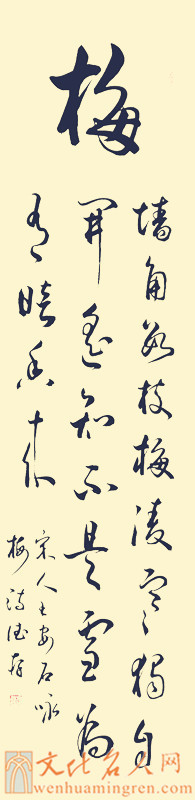 梅
墙角数枝梅凌寒獨自
開遥知不是雪为
有暗香来
宋人王安石咏
梅诗
文化名人网
wenhuamingren.com